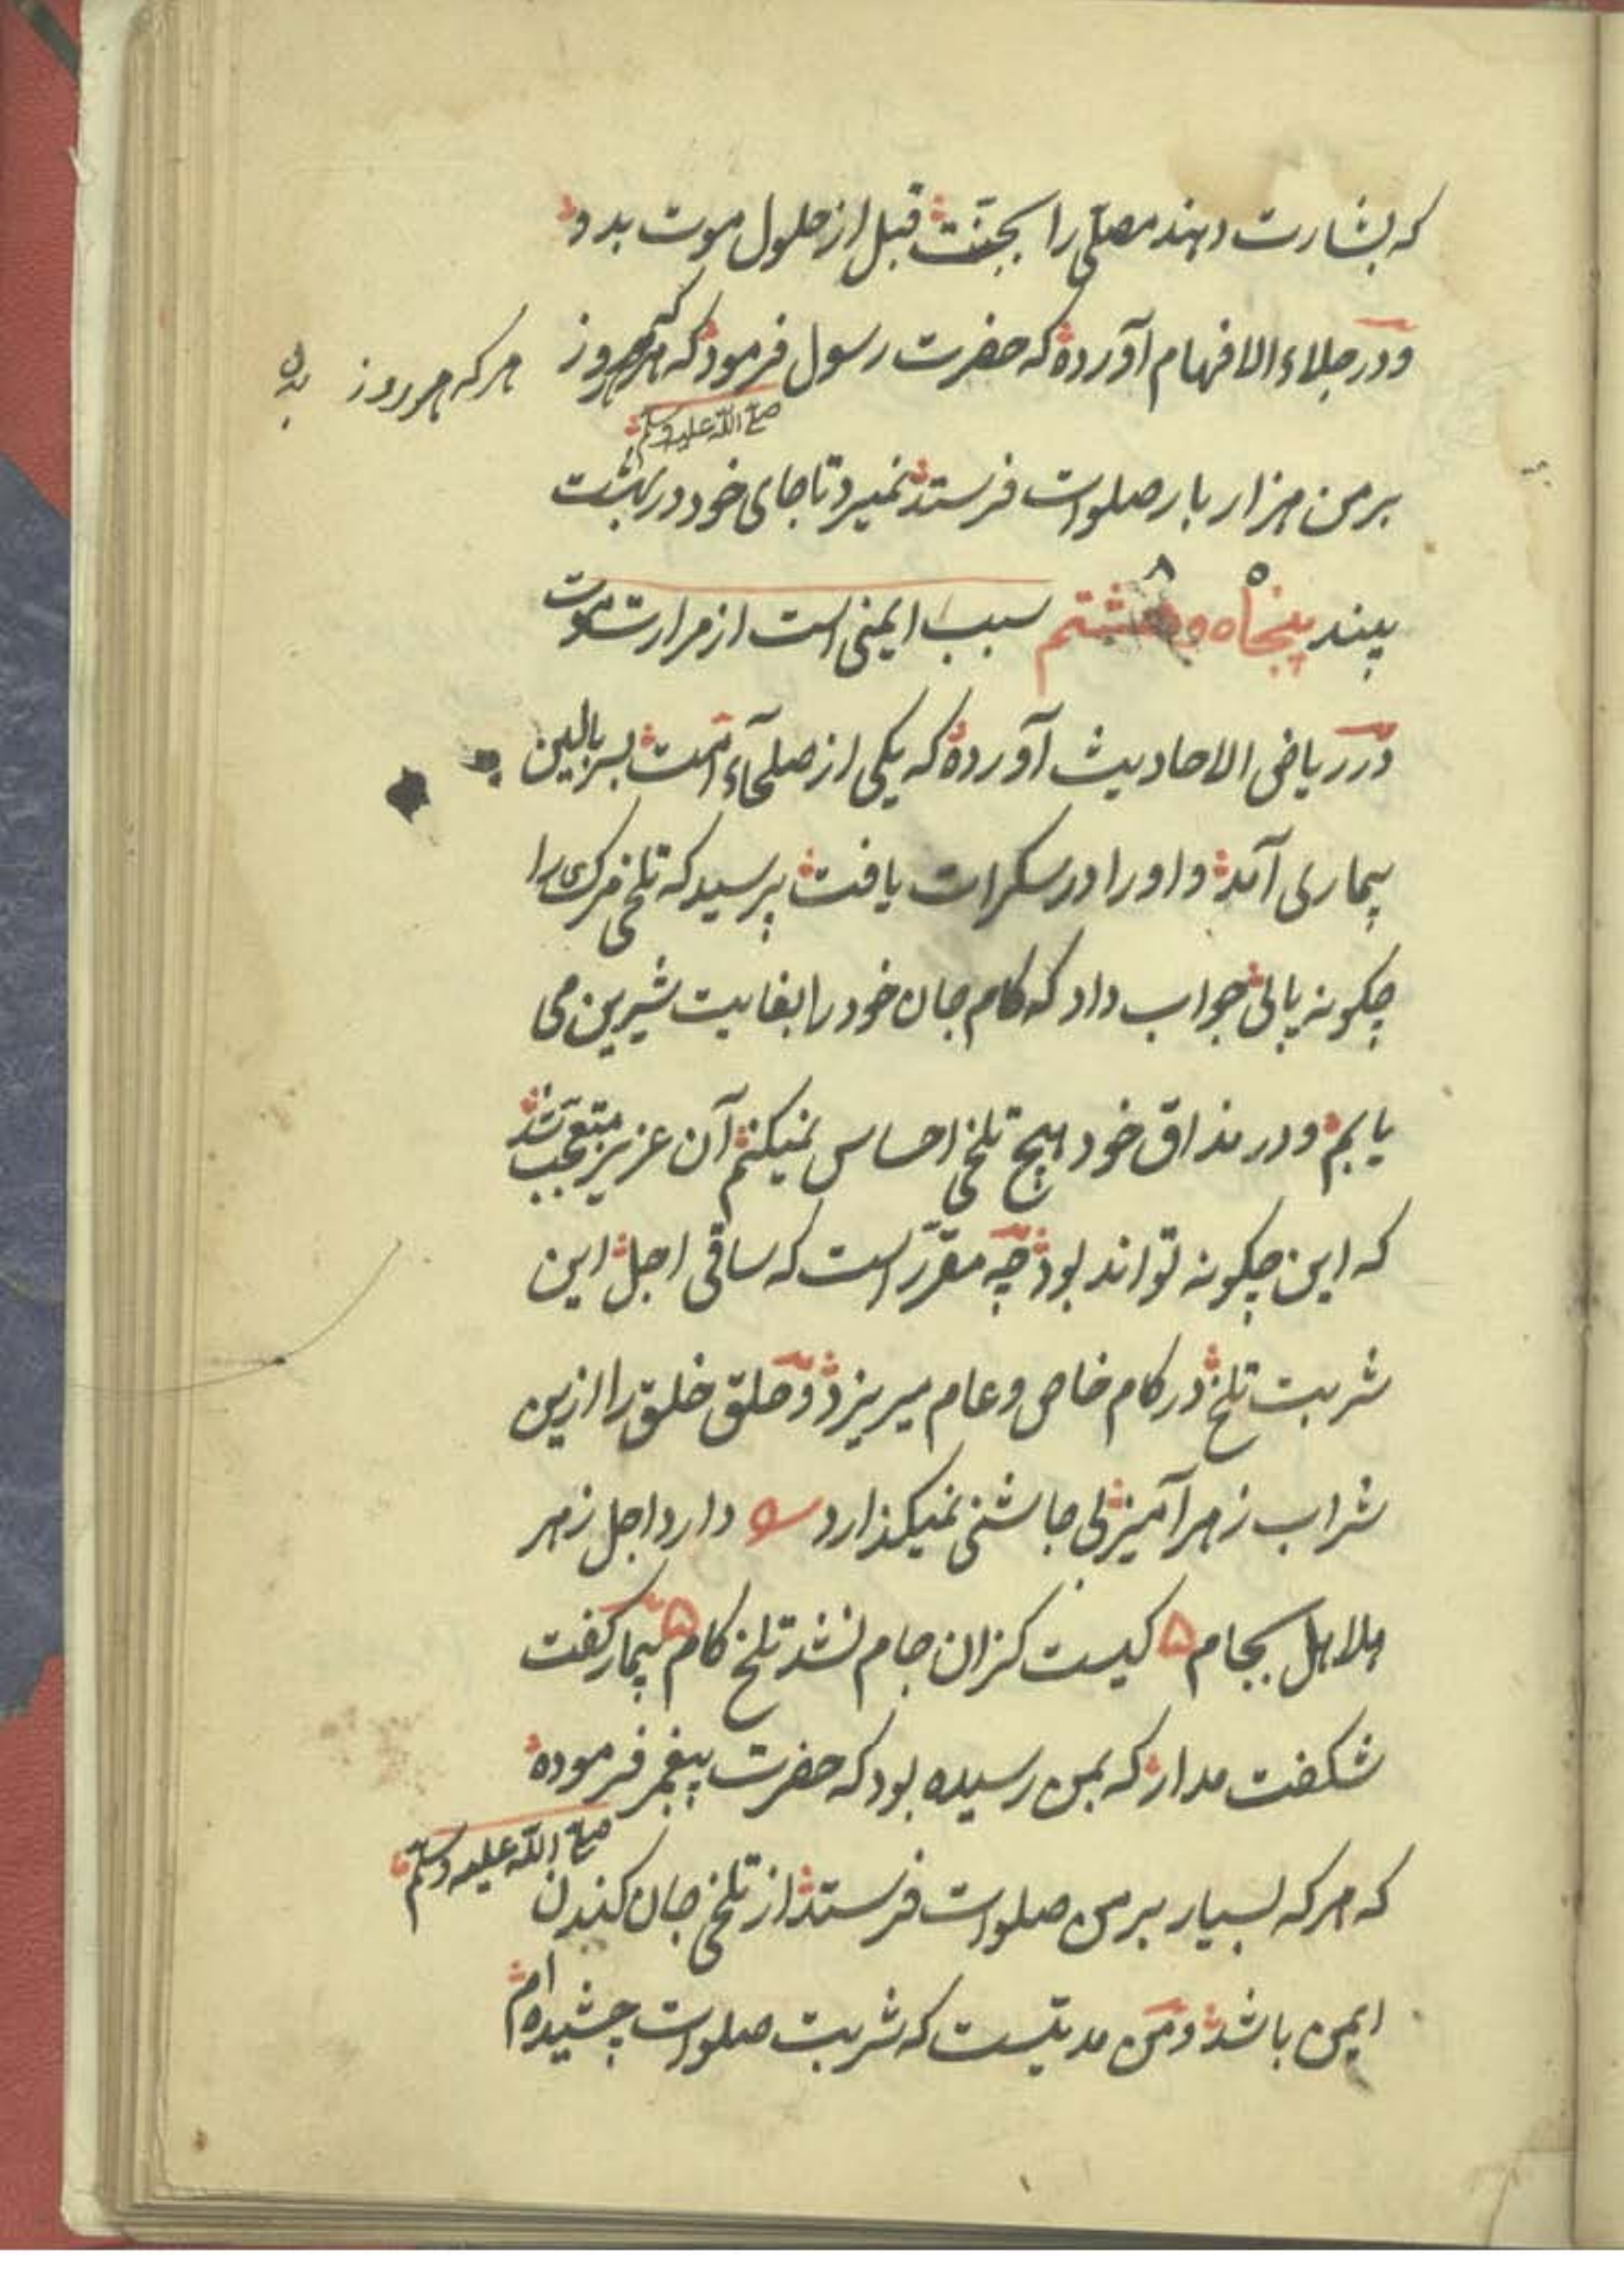 که بشارت دهند مصلّی را بجنّت قبل از حلول موت بدو
و در جلاء الافهام آورده که حضرت رسول فرمود که هر که هر روز
هر که هر روز
صلی الله علیه وسلم
بر من هزار بار صلوات فرستد نمیرد تا جای خود در بهشت
بیند پنجاه و هشتم سبب ایمنی است از مرارت موت
۵ ۸
در ریاض الاحادیث آورده که یکی از صلحآء امت بسر بالین
بیماری آمد و او را در سکرات یافت پرسید که تلخی مرک را
چکونه یابی جواب داد که کام جان خود را بغایت شیرین می
یابم و در مذاق خود هیچ تلخی احساس نمیکنم آن عزیز متعجب شد
که این چکونه تواند بود چه مقرّر است که ساقی اجل این
شربت تلخ در کام خاص و عام میریزد و حلق خلق را ازین
شراب زهر آمیز بی چاشنی نمیکذارد دارد اجل زهر
هلاهل بجام ۵ کیست کزان جام نشد تلخ کام ۵ بیمار کفت
شکفت مدار که بمن رسیده بود که حضرت پیغمبر فرموده
صلی الله علیه وسلم
که هر که بسیار بر من صلوات فرستد از تلخی جان کندن
ایمن باشد و من مدتیست که شربت صلوات چشیده ام